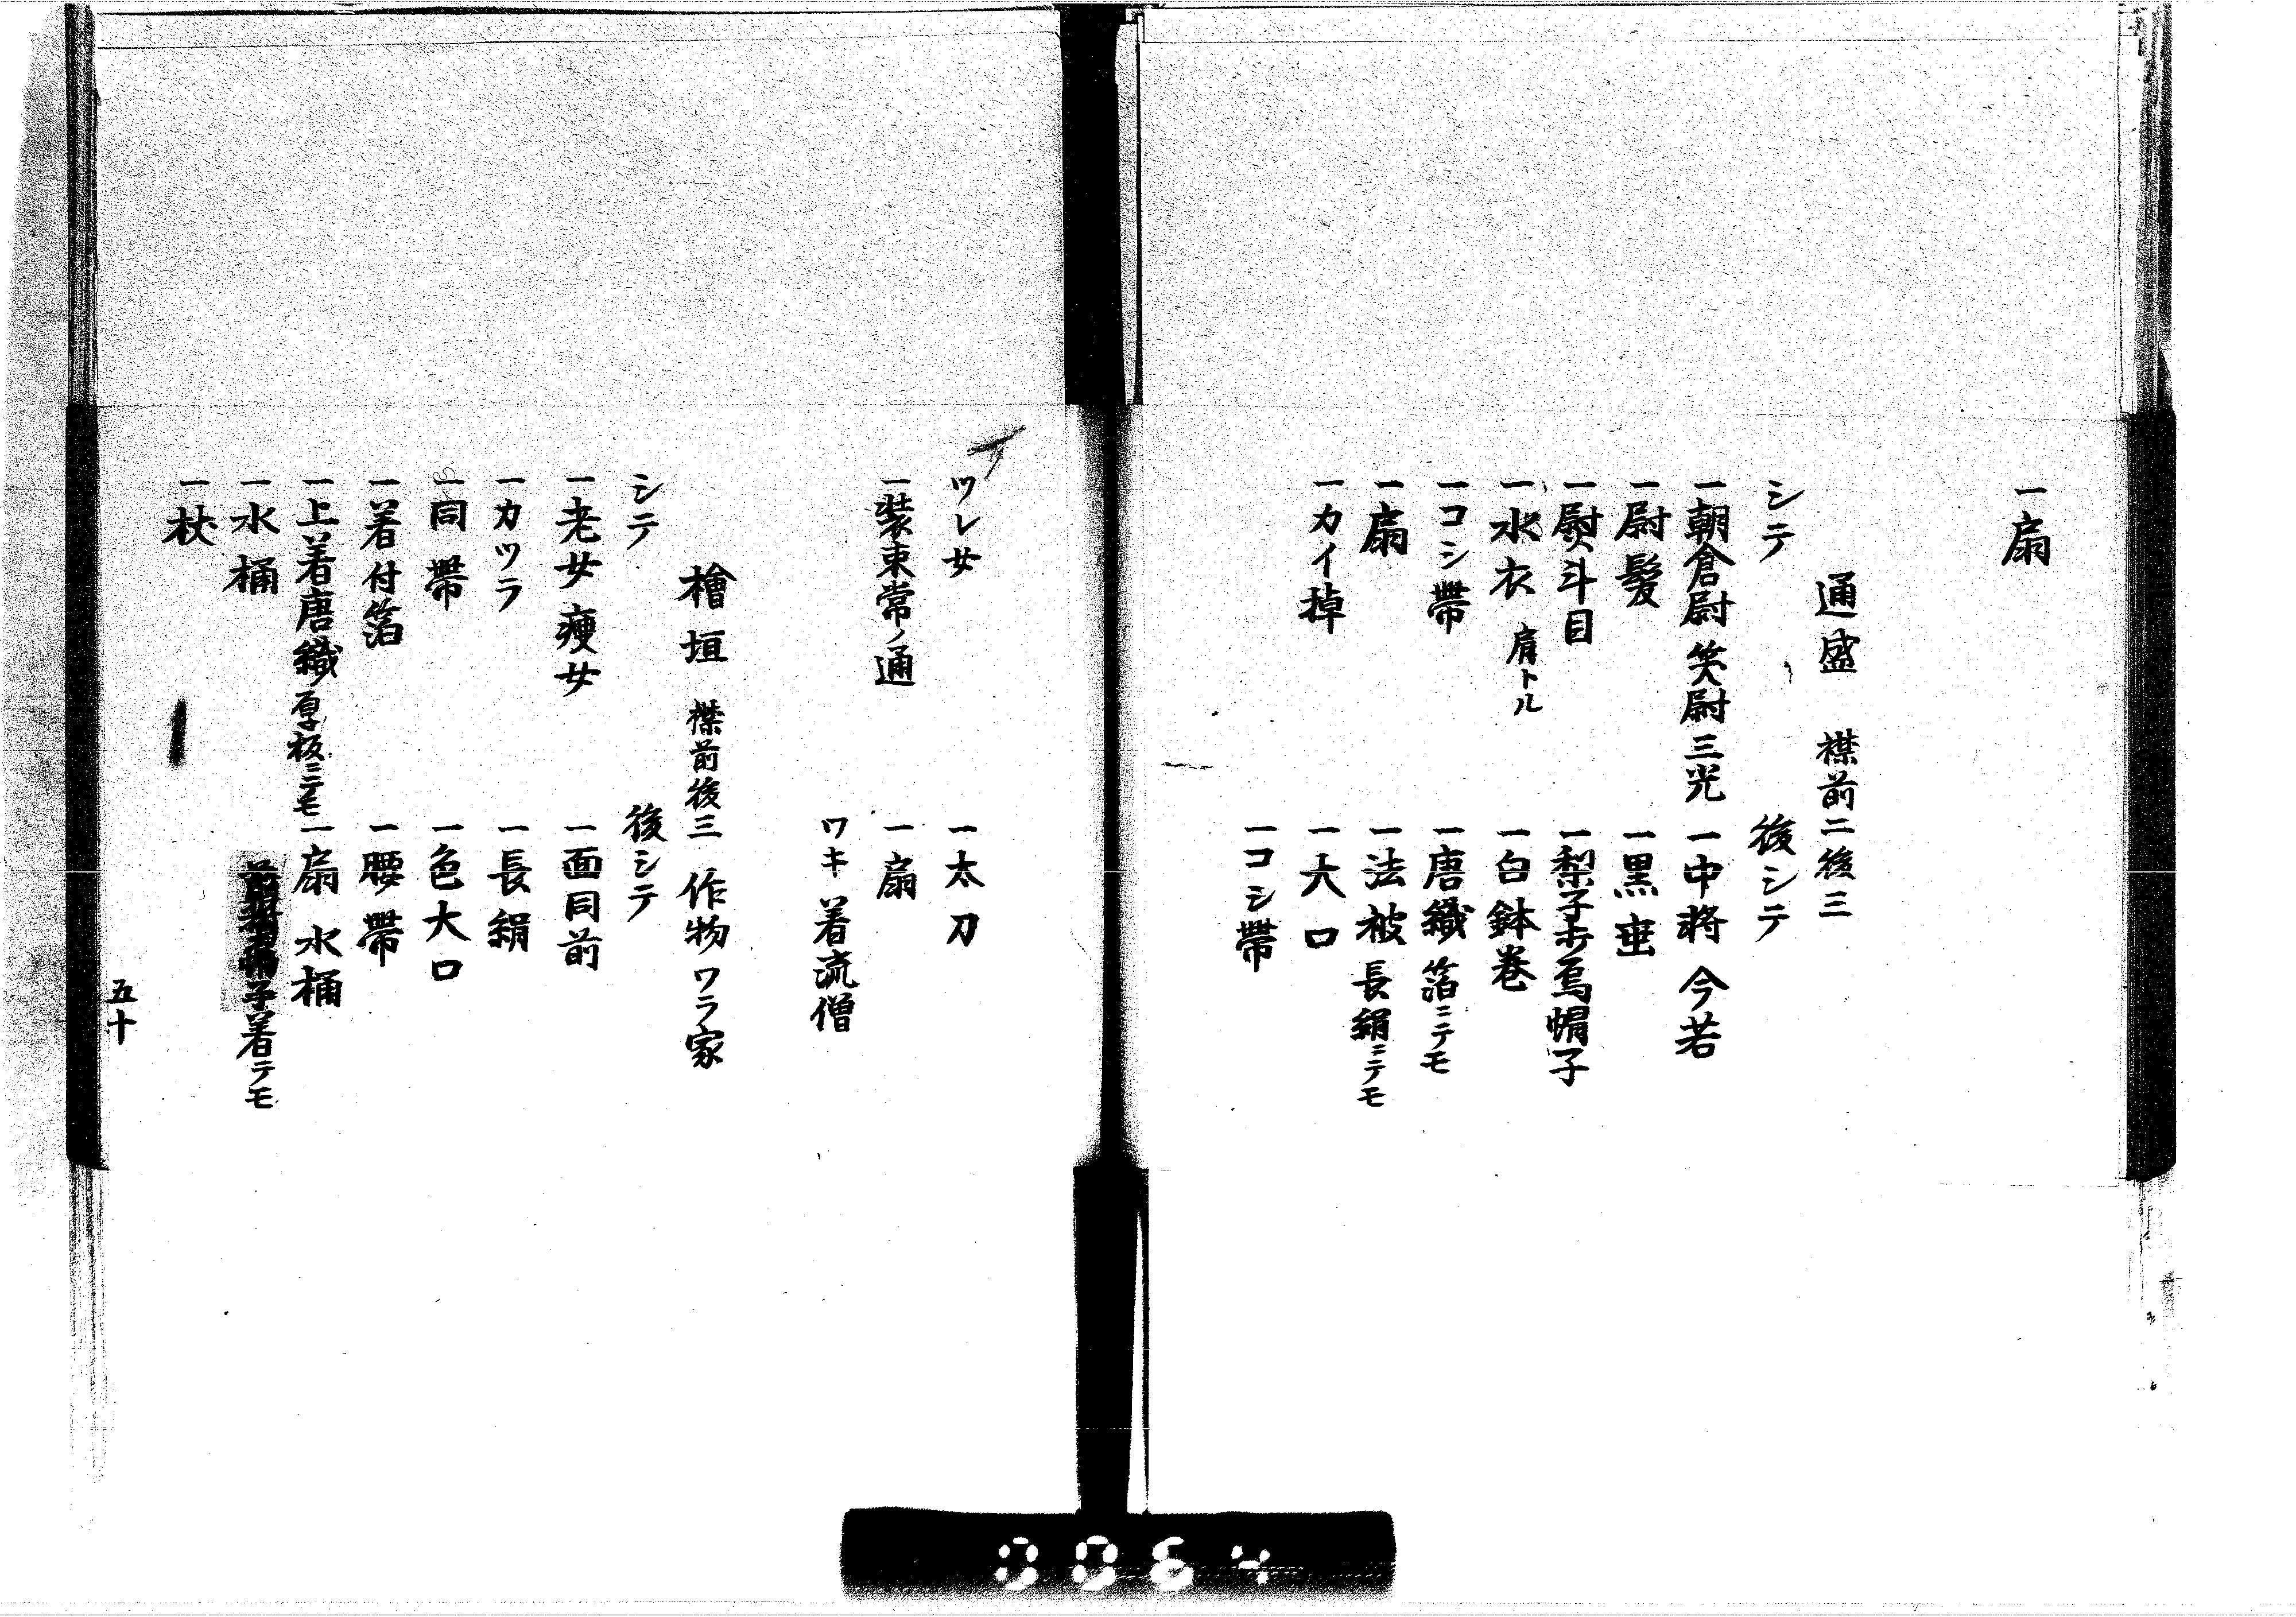 一扇
通盛　襟前二後三
シテ
後シテ
一朝倉尉 笑尉 三光
一中将 今若
一尉髪
一黒垂
一熨斗目
一梨子打烏帽子
一水衣 肩トル
一白鉢巻
一コシ帯
一唐織 箔ニテモ
一扇
一法被 長絹ニテモ
一カイ掉
一大口
一コシ帯
ツレ女
一太刀
一装束常ノ通
一扇
ワキ 着流僧
檜垣　襟前後三 作物ワラ家
シテ
後シテ
一老女 痩女
一面同前
一カツラ
一長絹
一同帯
一色大口
一着付箔
一腰帯
一上着唐織 厚板ニテモ
一扇 水桶
一水桶
子着テモ
一杖
五十